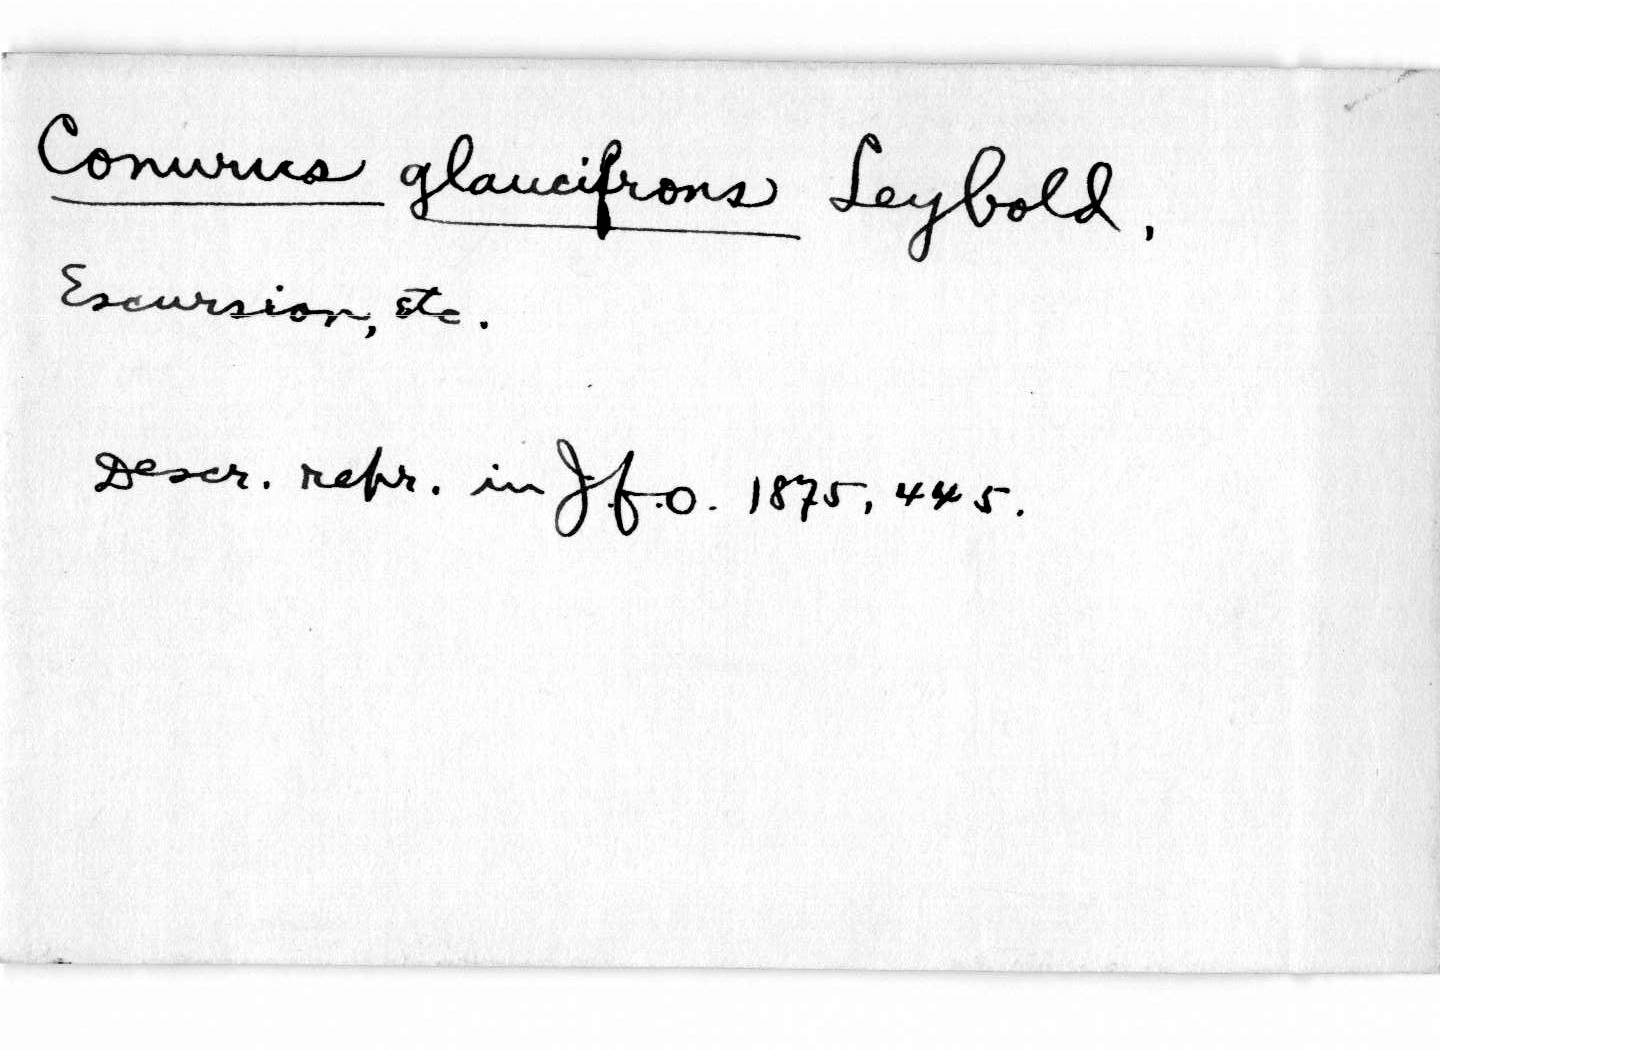 Conurus glaucifrons Leybold,
Escursion, etc.
Descr. repr. in J.f.O. 1875, 445.